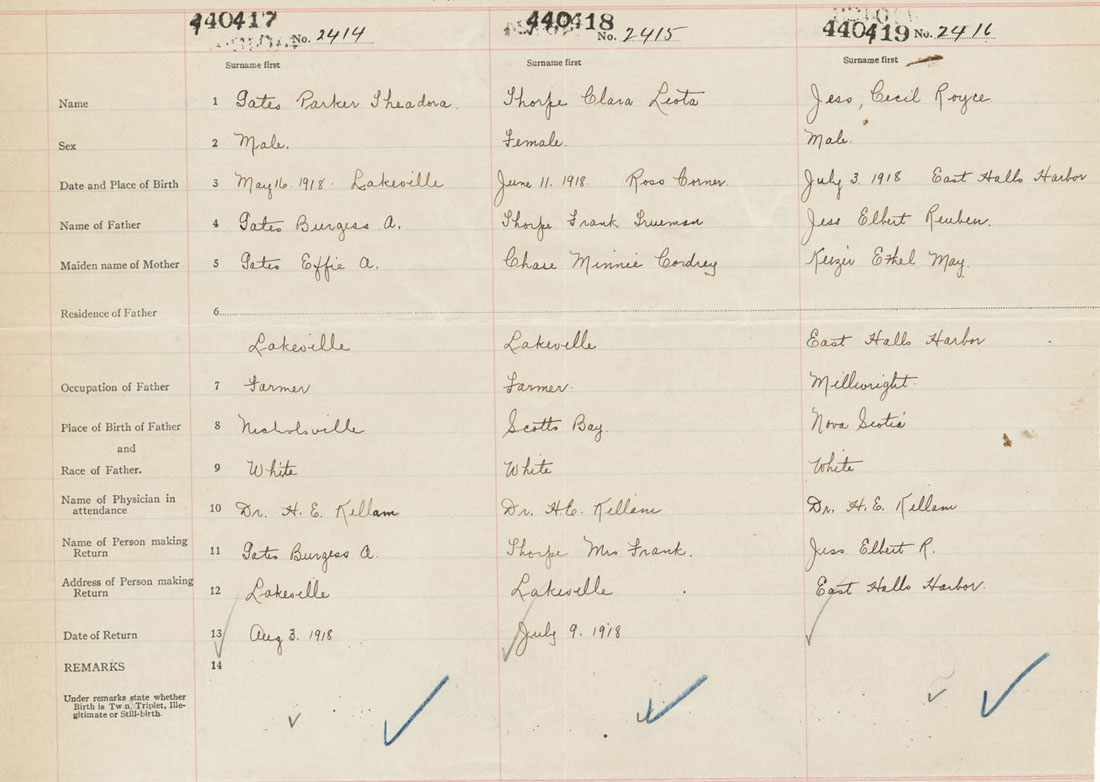 440417 No. 2414 440418 No. 2415 440419 No. 2416
Surname first Surname first Surname first
Name 1 Gates Parker Theadora Thorpe Clara Leota Jess, Cecil Royce
Sex 2 Male. Female. Male.
Date and Place of Birth 3 May 16 1918 Lakeville June 11. 1918 Ross Corner. July 3 1918 East Halls Harbor
Name of Father 4 Gates Burgess A. Thorpe Frank Trueman Jess Elbert Reuben.
Maiden name of Mother 5 Gates Effie A. Chase Minnie Cordrey Keizer Ethel May
Residence of Father 6
Lakeville Lakeville East Halls Harbor
Occupation of Father 7 Farmer Farmer. Millwright.
Place of Birth of Father 8 Nicholsville Scotts Bay. Nova Scotia
and
Race of Father. 9 White White White
Name of Physician in
attendance 10 Dr. H. E. Killam Dr. H.E. Killam Dr. H. E. Killam
Name of Person making
Return 11 Gates Burgess A. Thorpe Mrs Frank. Jess Elbert R.
Address of Person making
Return 12 Lakeville Lakeville East Halls Harbor.
Date of Return 13 Aug 3. 1918 July 9. 1918
REMARKS 14
Under remarks state whether
Birth is Tw n, Triplet, Ille-
gitimate or Still-birth.